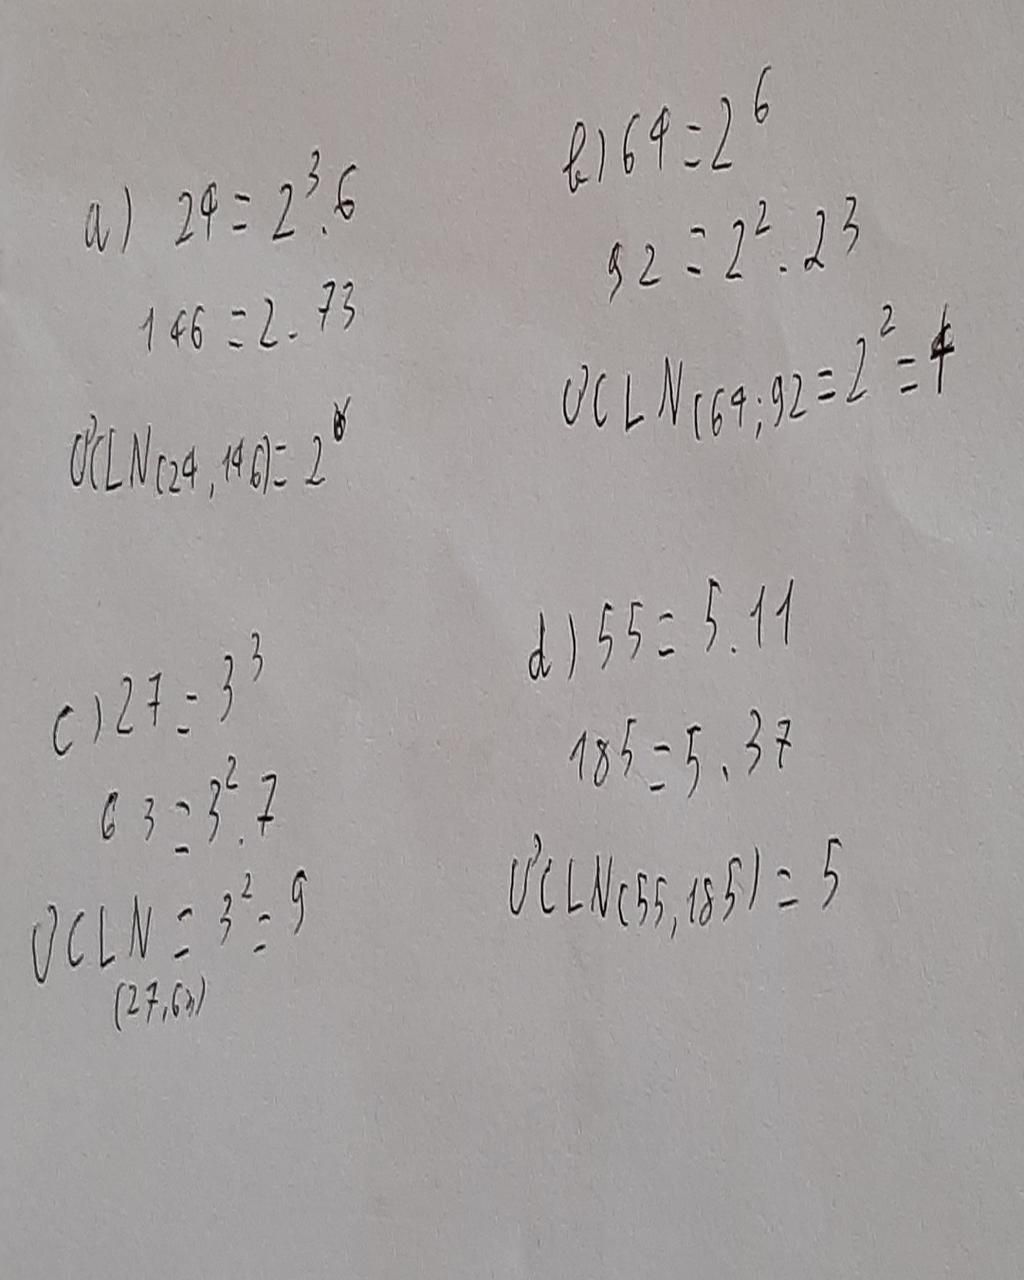 a) 24 = 2³.6
146 = 2.73
ƯCLN(24,146) = 2
b) 64 = 2⁶
92 = 2².23
ƯCLN(64;92 = 2² = 4
c) 27 = 3³
63 = 3².7
ƯCLN = 3² = 9
(27,63)
d) 55 = 5.11
185 = 5.37
ƯCLN(55,185) = 5